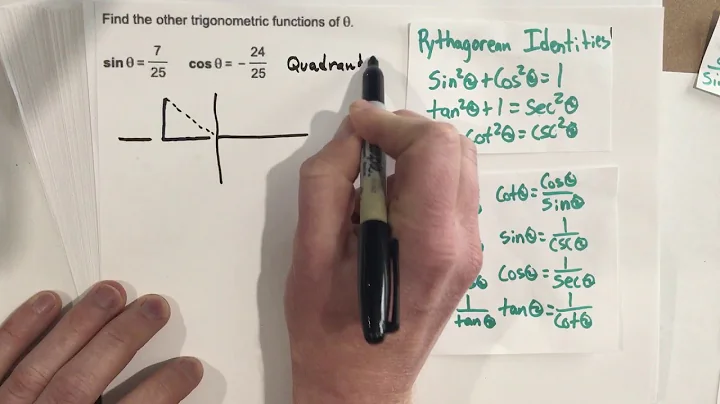 Find the other trigonometric functions of θ.
sin θ = 7/25 cos θ = - 24/25 Quadrant
Pythagorean Identities
Sin²θ + Cos²θ = 1
tan²θ + 1 = Sec²θ
cot²θ = csc²θ
cotθ = Cosθ/Sinθ
sinθ = 1/cscθ
cosθ = 1/secθ
1/tanθ tanθ = 1/cotθ